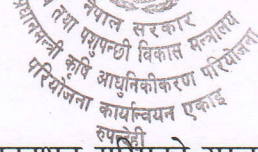 नेपाल सरकार
तथा पशुपन्छी विकास मन्त्रालय
प्रधानमन्त्री कृषि आधुनिकीकरण परियोजना
परियोजना कार्यान्वयन एकाइ
रुपन्देही